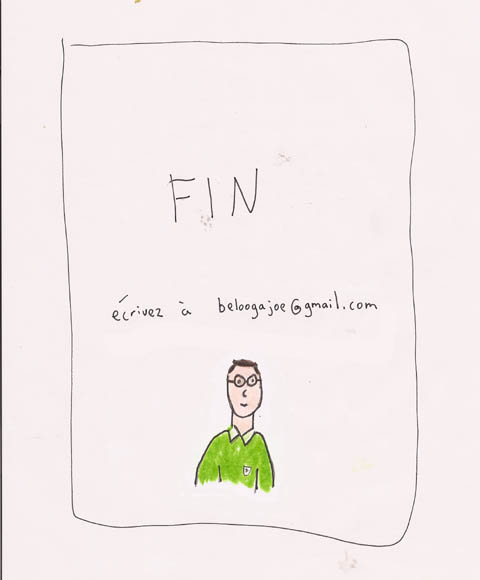 FIN
écrivez à beloogajoe@gmail.com